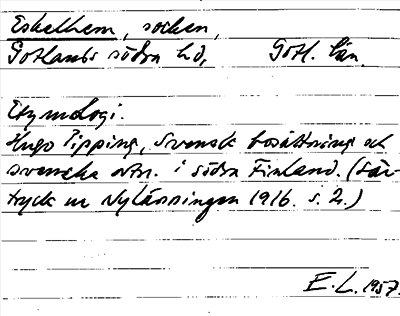 Eskelhem, socken,
Gotlands södra hd, Gotl. län.
Etymologi.
Hugo Pipping, Svensk bosättning och
svenska ortn. i södra Finland. (Sär-
tryck ur Nylänningen 1916. s. 2.)
E. L. 1957.